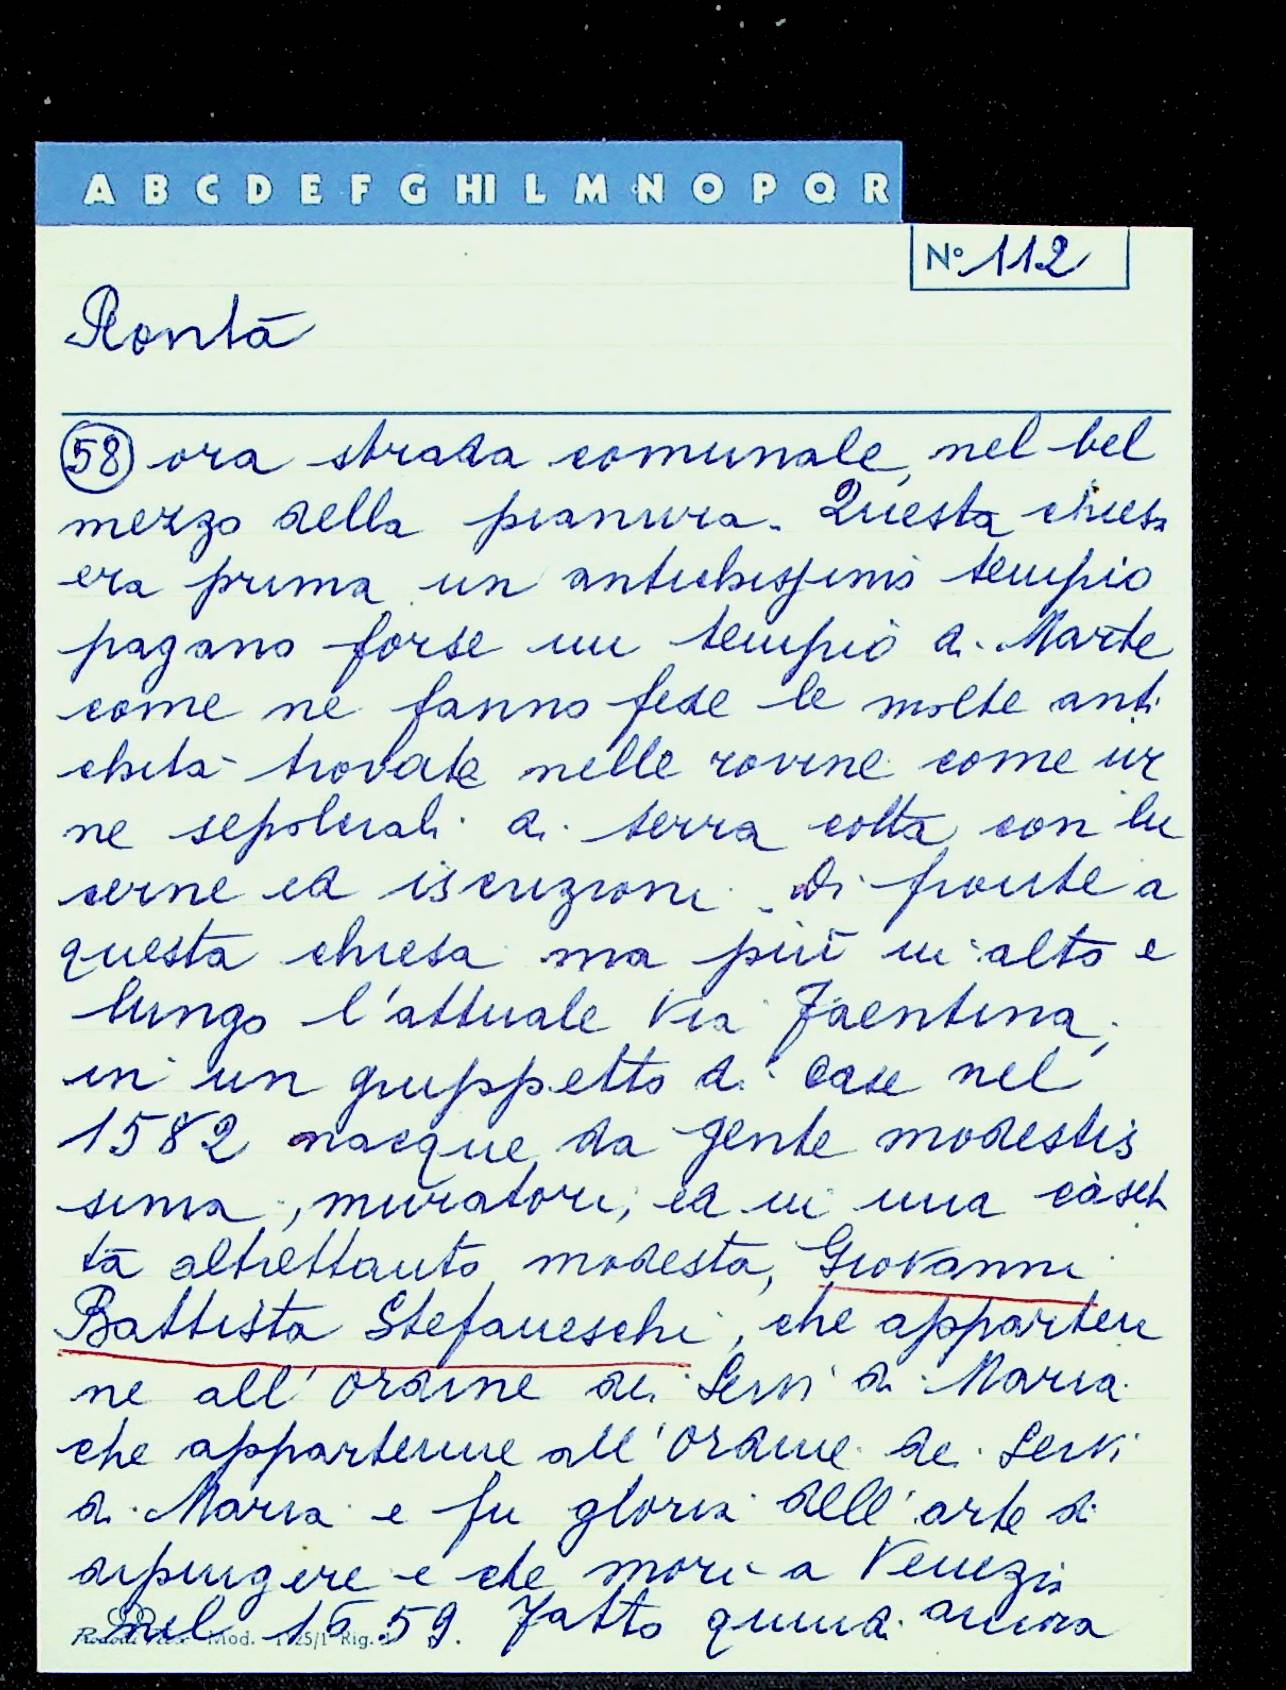 A B C D E F G HI L M N O P Q R
N° 112
Rontà
58 ora strada comunale, nel bel
mezzo della pianura. Questa chiesa
era prima un antichissimo tempio
pagano forse un tempio di Marte
come ne fanno fede le molte anti
chità trovate nelle rovine come ur
ne sepolcrali di terra cotta con lu
cerne ed iscrizioni. Di fronte a
questa chiesa ma più in alto e
lungo l'attuale Via Faentina,
in un gruppetto di case nel
1582 nacque da gente modestis
sima, muratori, ed in una caset
ta altrettanto modesta, Giovanni
Battista Stefaneschi, che apparten
ne all'ordine dei Servi di Maria
che appartenne all'ordine dei Servi
di Maria e fu gloria dell'arte di
dipingere e che morì a Venezia
nel 1659. Fatto quindi ancora
Mod. Rig.